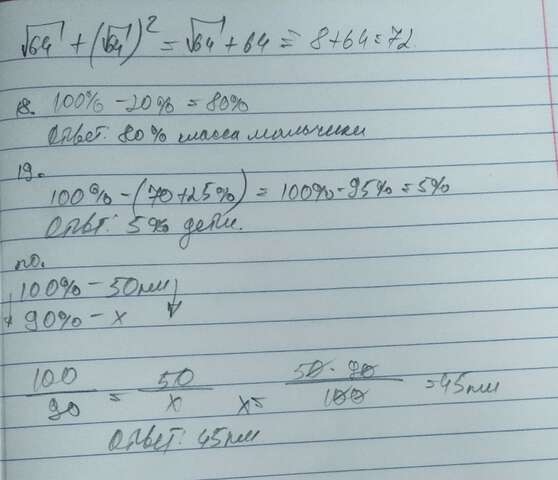 √64 + (√64)² = √64 + 64 = 8+64=72
18. 100% - 20% = 80%
Ответ: 80% класса мальчики
19.
100% - (70+25%) = 100% - 95% = 5%
Ответ: 5% дети.
20.
100% - 50мин
90% - x
100/90 = 50/x x= 50·90/100 =45мин
Ответ: 45мин